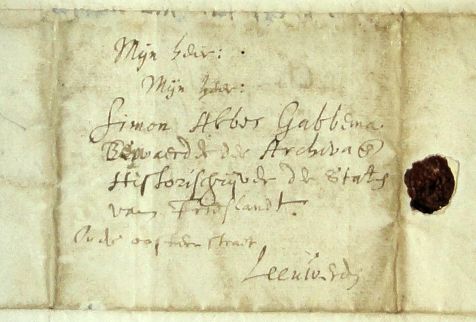 Mijn heer:
Mijn heer:
Simon Abbes Gabbema
Bewaerder der Archiva &
Historischrijver de Staten
van Frieslandt.
straet
Leeuwerden